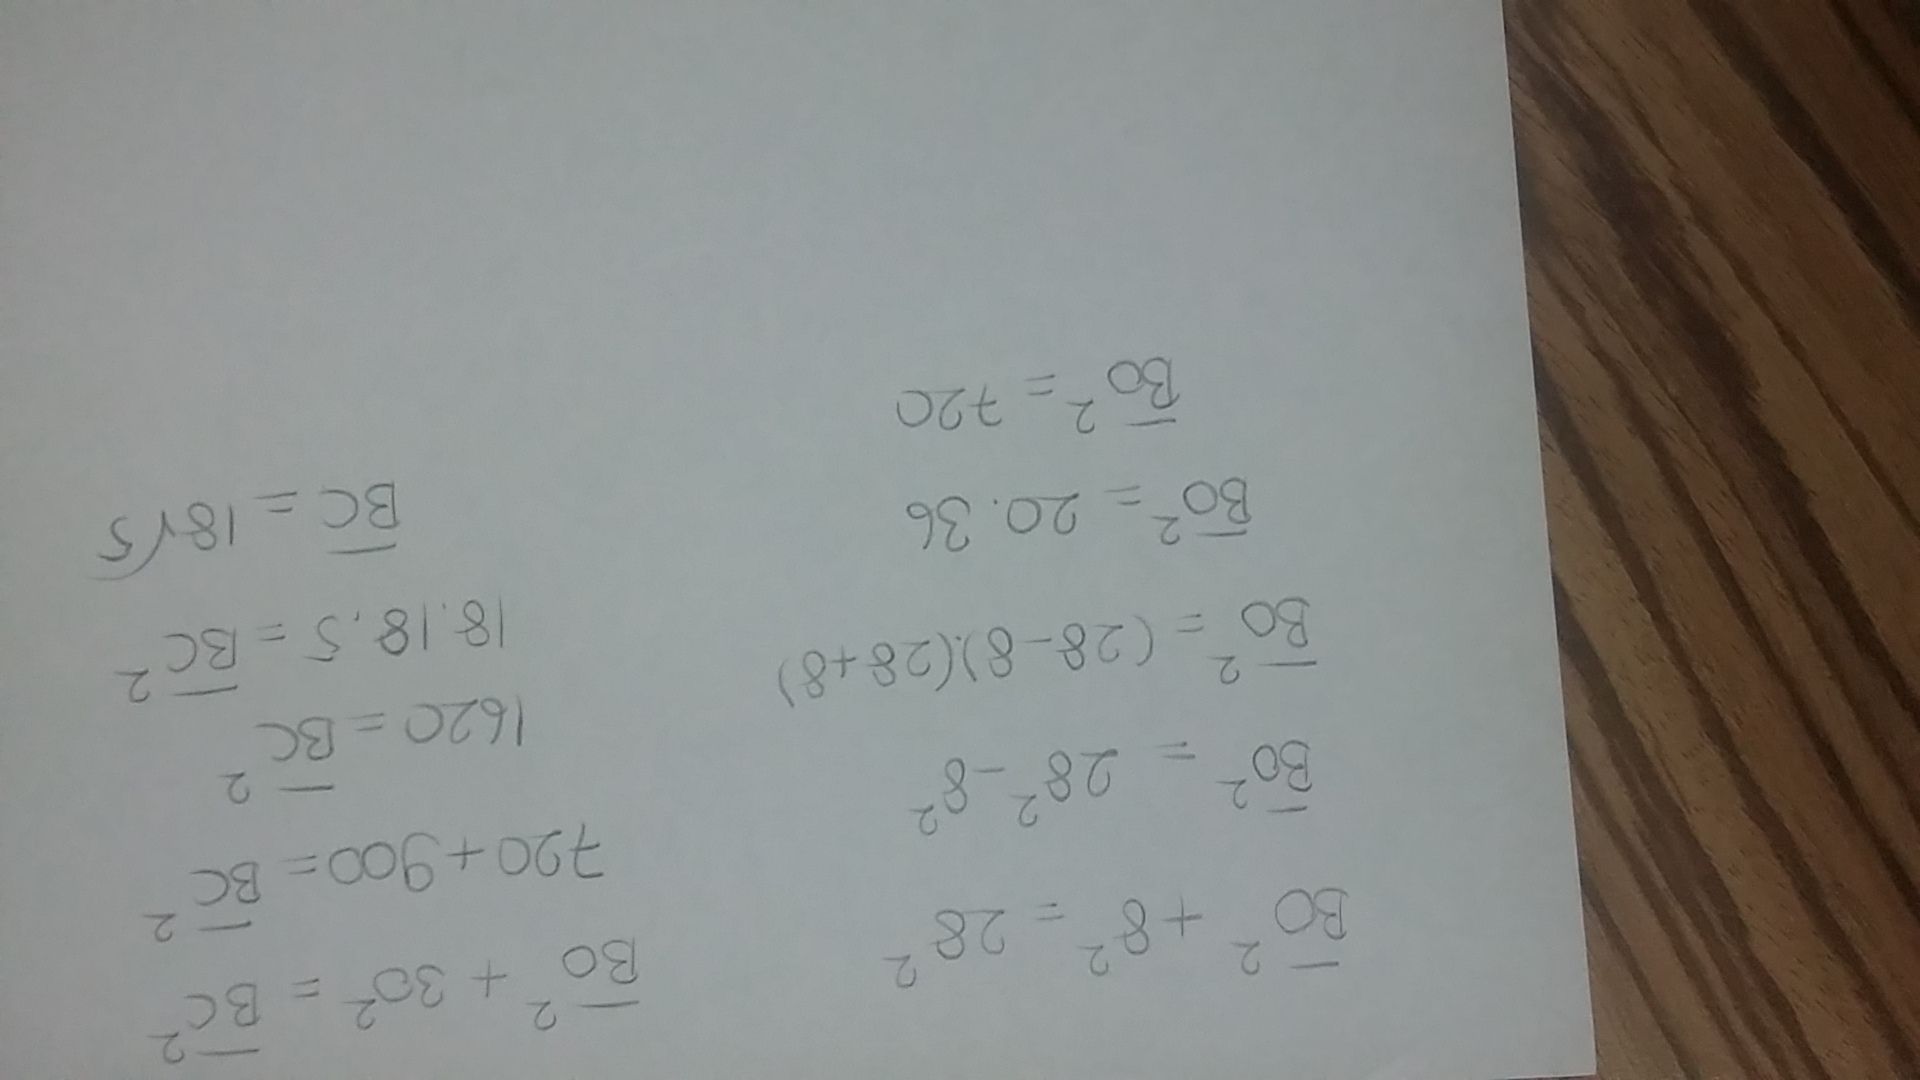 B̅O̅² + 8² = 28²
B̅O̅² = 28² - 8²
B̅O̅² = (28-8).(28+8)
B̅O̅² = 20.36
B̅O̅² = 720
B̅O̅² + 30² = B̅C̅²
720 + 900 = B̅C̅²
1620 = B̅C̅²
18.18.5 = B̅C̅²
B̅C̅ = 18√5